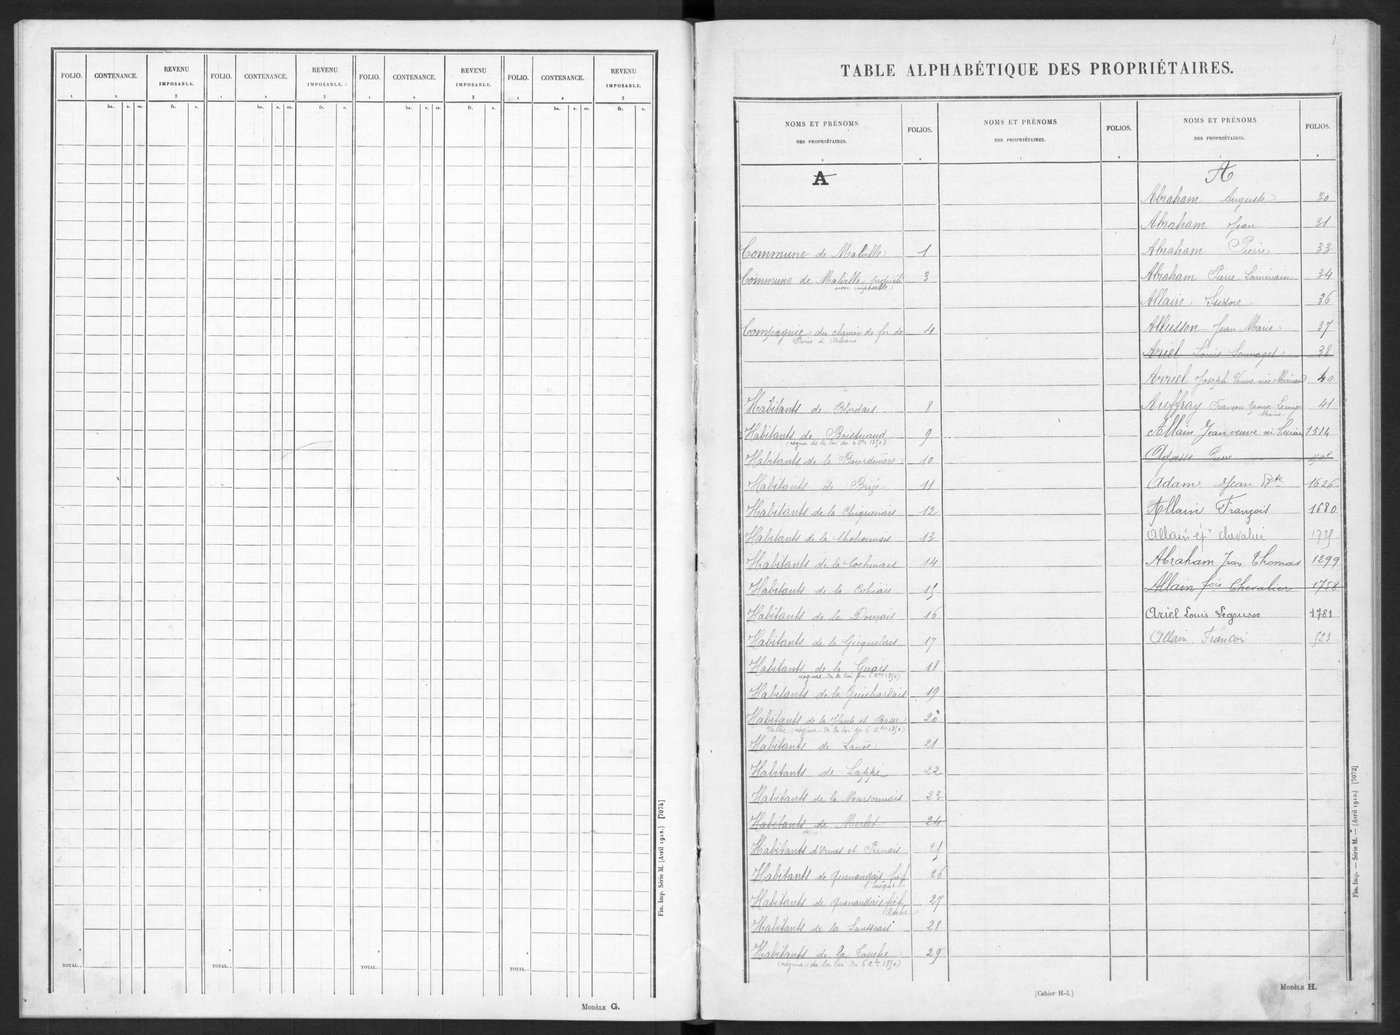 FOLIO. CONTENANCE. REVENU IMPOSABLE. FOLIO. CONTENANCE. REVENU IMPOSABLE. FOLIO. CONTENANCE. REVENU IMPOSABLE. FOLIO. CONTENANCE. REVENU IMPOSABLE.
1 2 3 1 2 3 1 2 3 1 2 3
ha. a. ca. fr. c. ha. a. ca. fr. c. ha. a. ca. fr. c. ha. a. ca. fr. c.
TOTAL.. TOTAL.. TOTAL.. TOTAL..
Fin. Imp. Série M. (Avril 1912.) [7074]
MODÈLE G.
1
TABLE ALPHABÉTIQUE DES PROPRIÉTAIRES.
NOMS ET PRÉNOMS
DES PROPRIÉTAIRES.
FOLIOS.
A
Commune de Malville 1
Commune de Malville propriété 3
non imposable
Compagnie du chemin de fer de 4
Paris à Orléans
Habitants de Blordais 8
Habitants de 9
(régime de la loi du 6 Xbre 1850)
Habitants de la Bourdinière 10
Habitants de Brizé 11
Habitants de la 12
Habitants de la 13
Habitants de la Cochinais 14
Habitants de la 15
Habitants de la Douçais 16
Habitants de la Gicquelais 17
Habitants de la Guais 18
régime de la loi du 6 Xbre 1850)
Habitants de la Guichardais 19
Habitants de la Haute et Basse 20
(régime de la loi du 6 Xbre 1850)
Habitants de 21
Habitants de Lappé 22
Habitants de la 23
Habitants de Merlet 24
Habitants d'Ormes et 25
Habitants de 26
Habitants de 27
Habitants de la 28
Habitants de la Touche 29
(régime de la loi du 6 Xbre 1850)
NOMS ET PRÉNOMS
DES PROPRIÉTAIRES.
FOLIOS.
NOMS ET PRÉNOMS
DES PROPRIÉTAIRES.
FOLIOS.
A
Abraham Auguste 30
Abraham Jean 31
Abraham Pierre 33
Abraham Pierre 34
Allaire Isidore 36
Allusson Jean Marie 37
Ariel Louis Sauvaget 38
Avriel Joseph Veuve née 40
Auffray François 41
Allain Jean veuve née 1514
Pierre
Adam Jean Bte 1626
Allain François 1680
Allain ép. Chevalier 1729
Abraham Jean Thomas 1299
Allain fois Chevalier 1758
Ariel Louis Legousse 1781
Allain François 523
Fin. Imp. — Série M. — (Avril 1912.) [7073]
(Cahier H-1.)
MODÈLE H.